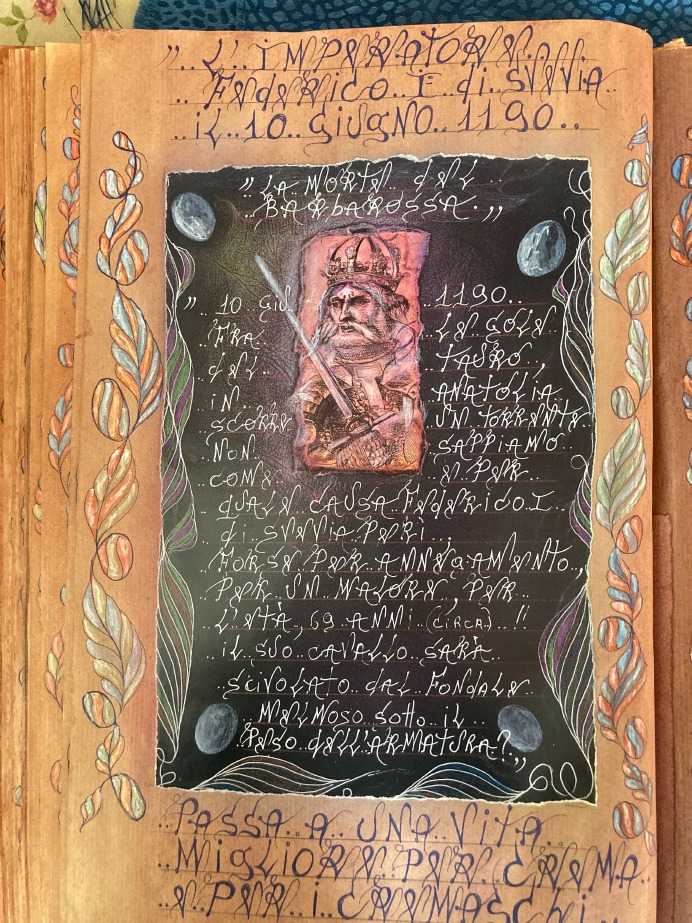 "..L'IMPERATORE..
..FEDERICO..I..di..SVEVIA..
..iL..10..GiUGNO..1190..
"LA MORTE dEL..
..BARbAROSSA.."
"..10 GiU. ..1190..
..FRA.. ..LE GOLE..
..dEL.. TAURO,
..iN.. ANATOLIA..
..SCORRE UN TORRENTE
..NON.. SAPPIAMO..
..COME.. E PER..
..qUALE CAUSA FEdERiCO I..
..di SVEVIA PERÌ..,
..FORSE PER ANNEGAMENTO..,
..PER UN MALORE, PER..
..L'ETÀ, 69 ANNI (CiRCA)..!!
..iL SUO CAVALLO SARÀ..
..SCiVOLATO dAL FONdALE..
..MELMOSO SOttO iL..
..PESO dELL'ARMATURA?.."
..PASSA..A..UNA ViTA..
..MiGLiORE..PER..CREMA..
..E PER i CREMASChi